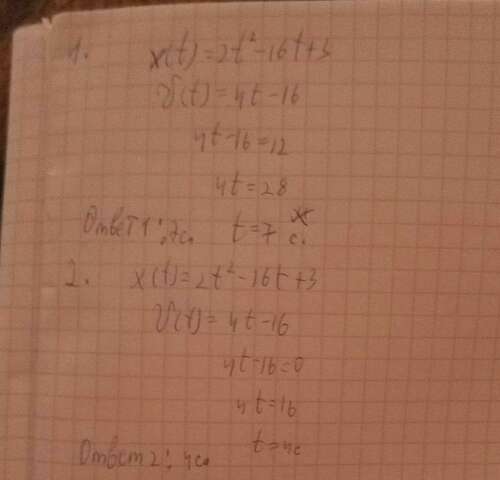 1. x(t)=2t²-16t+3
V(t)=4t-16
4t-16=12
4t=28
Ответ 1: 7с. t=7 с.
2. x(t)=2t²-16t+3
V(t)=4t-16
4t-16=0
4t=16
t=4с
Ответ 2: 4с.